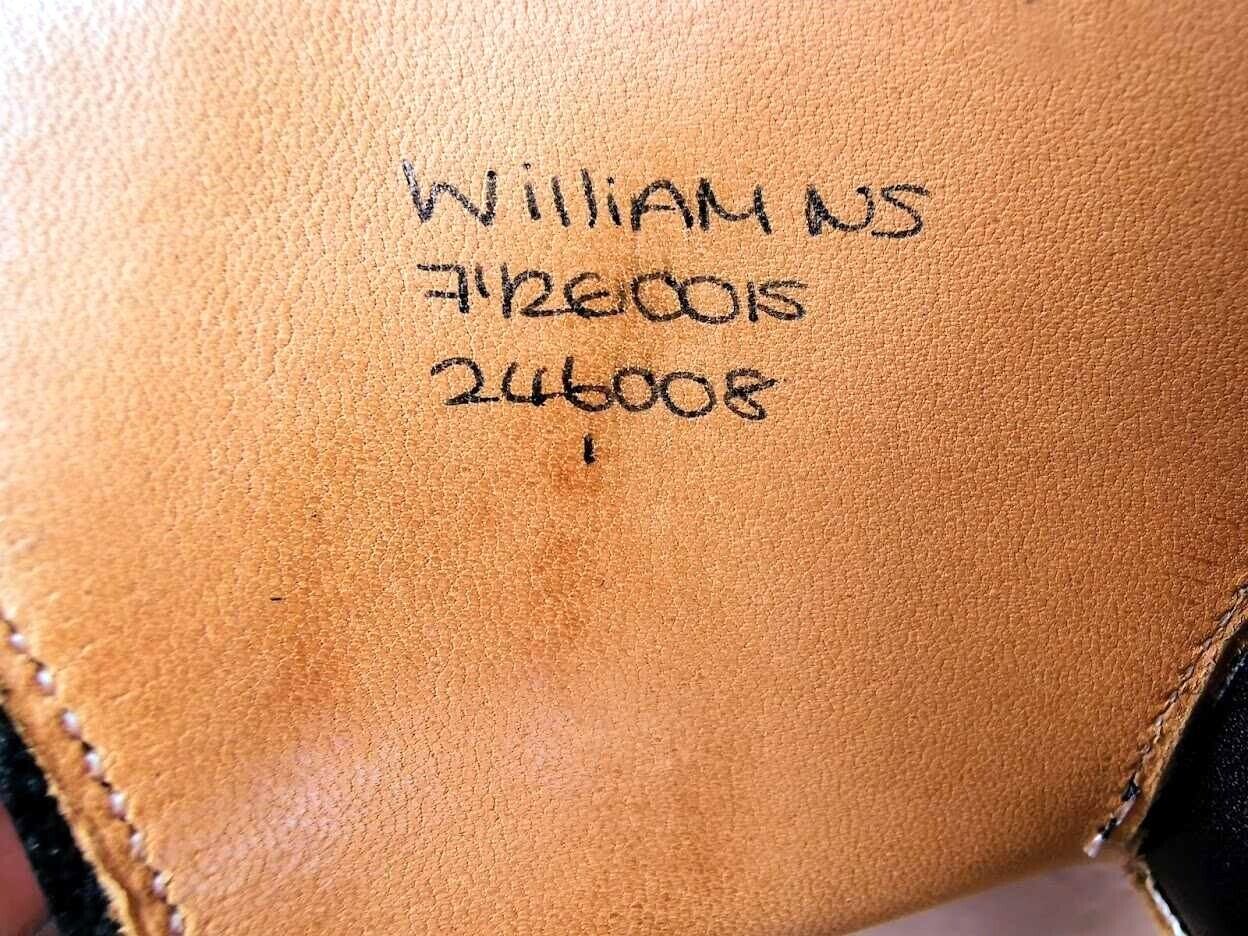 WilliAM NS
71260015
246008